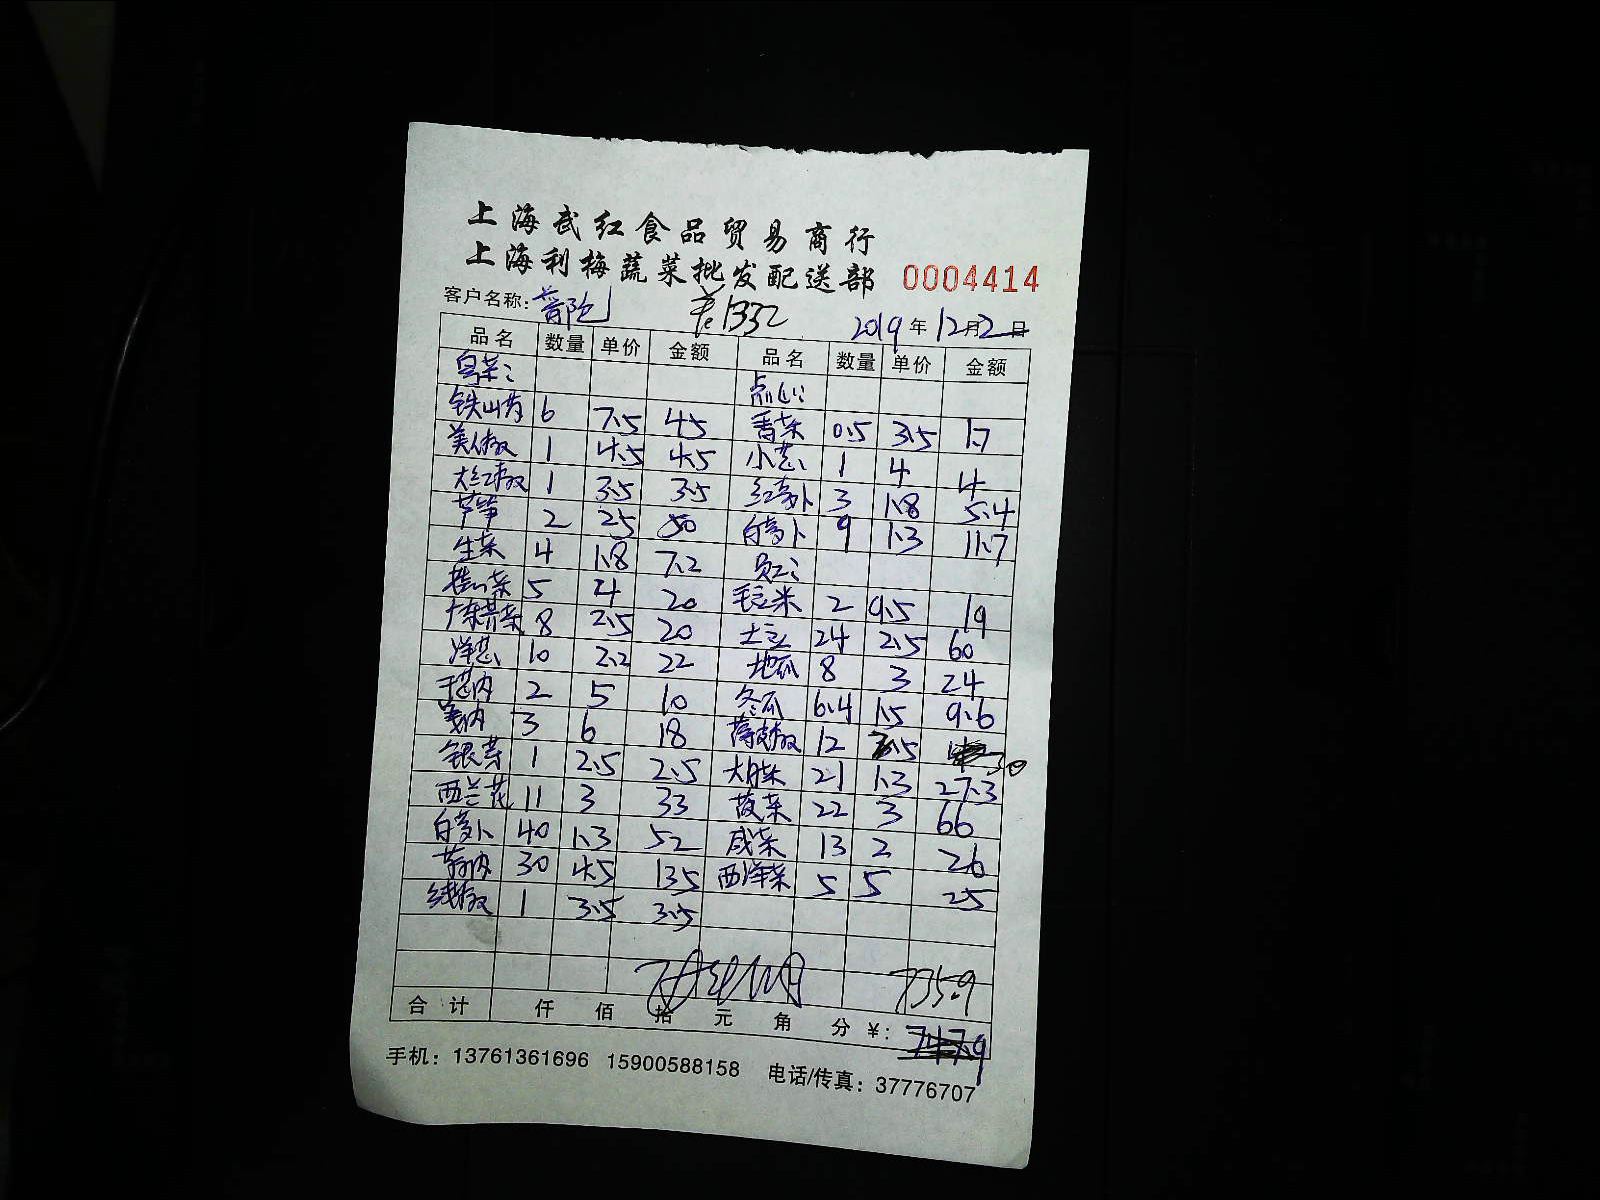 上海武红食品贸易商行
上海利梅蔬菜批发配送部 0004414
客户名称: 普陀 1332 2019年12月2日
品名 数量 单价 金额 品名 数量 单价 金额
点心:
铁山药 6 7.5 45 青菜 0.5 3.5 1.7
美人椒 1 4.5 4.5 小葱 1 4 4
大红椒 1 3.5 3.5 红萝卜 3 1.8 5.4
芦笋 2 25 50 白萝卜 9 1.3 11.7
生菜 4 1.8 7.2 员工:
5 4 20 毛豆米 2 9.5 19
8 2.5 20 土豆 24 2.5 60
洋葱 10 2.2 22 地瓜 8 3 24
2 5 10 冬瓜 6.4 1.5 9.6
3 6 18 薄皮椒 12 2.5 30
银芽 1 2.5 2.5 21 1.3 27.3
西兰花 11 3 33 22 3 66
白萝卜 40 1.3 52 咸菜 13 2 26
30 4.5 135 西洋菜 5 5 25
线椒 1 3.5 3.5
735.9
合计 仟 佰 拾 元 角 分 ¥: 747.9
手机: 13761361696 15900588158 电话/传真: 37776707